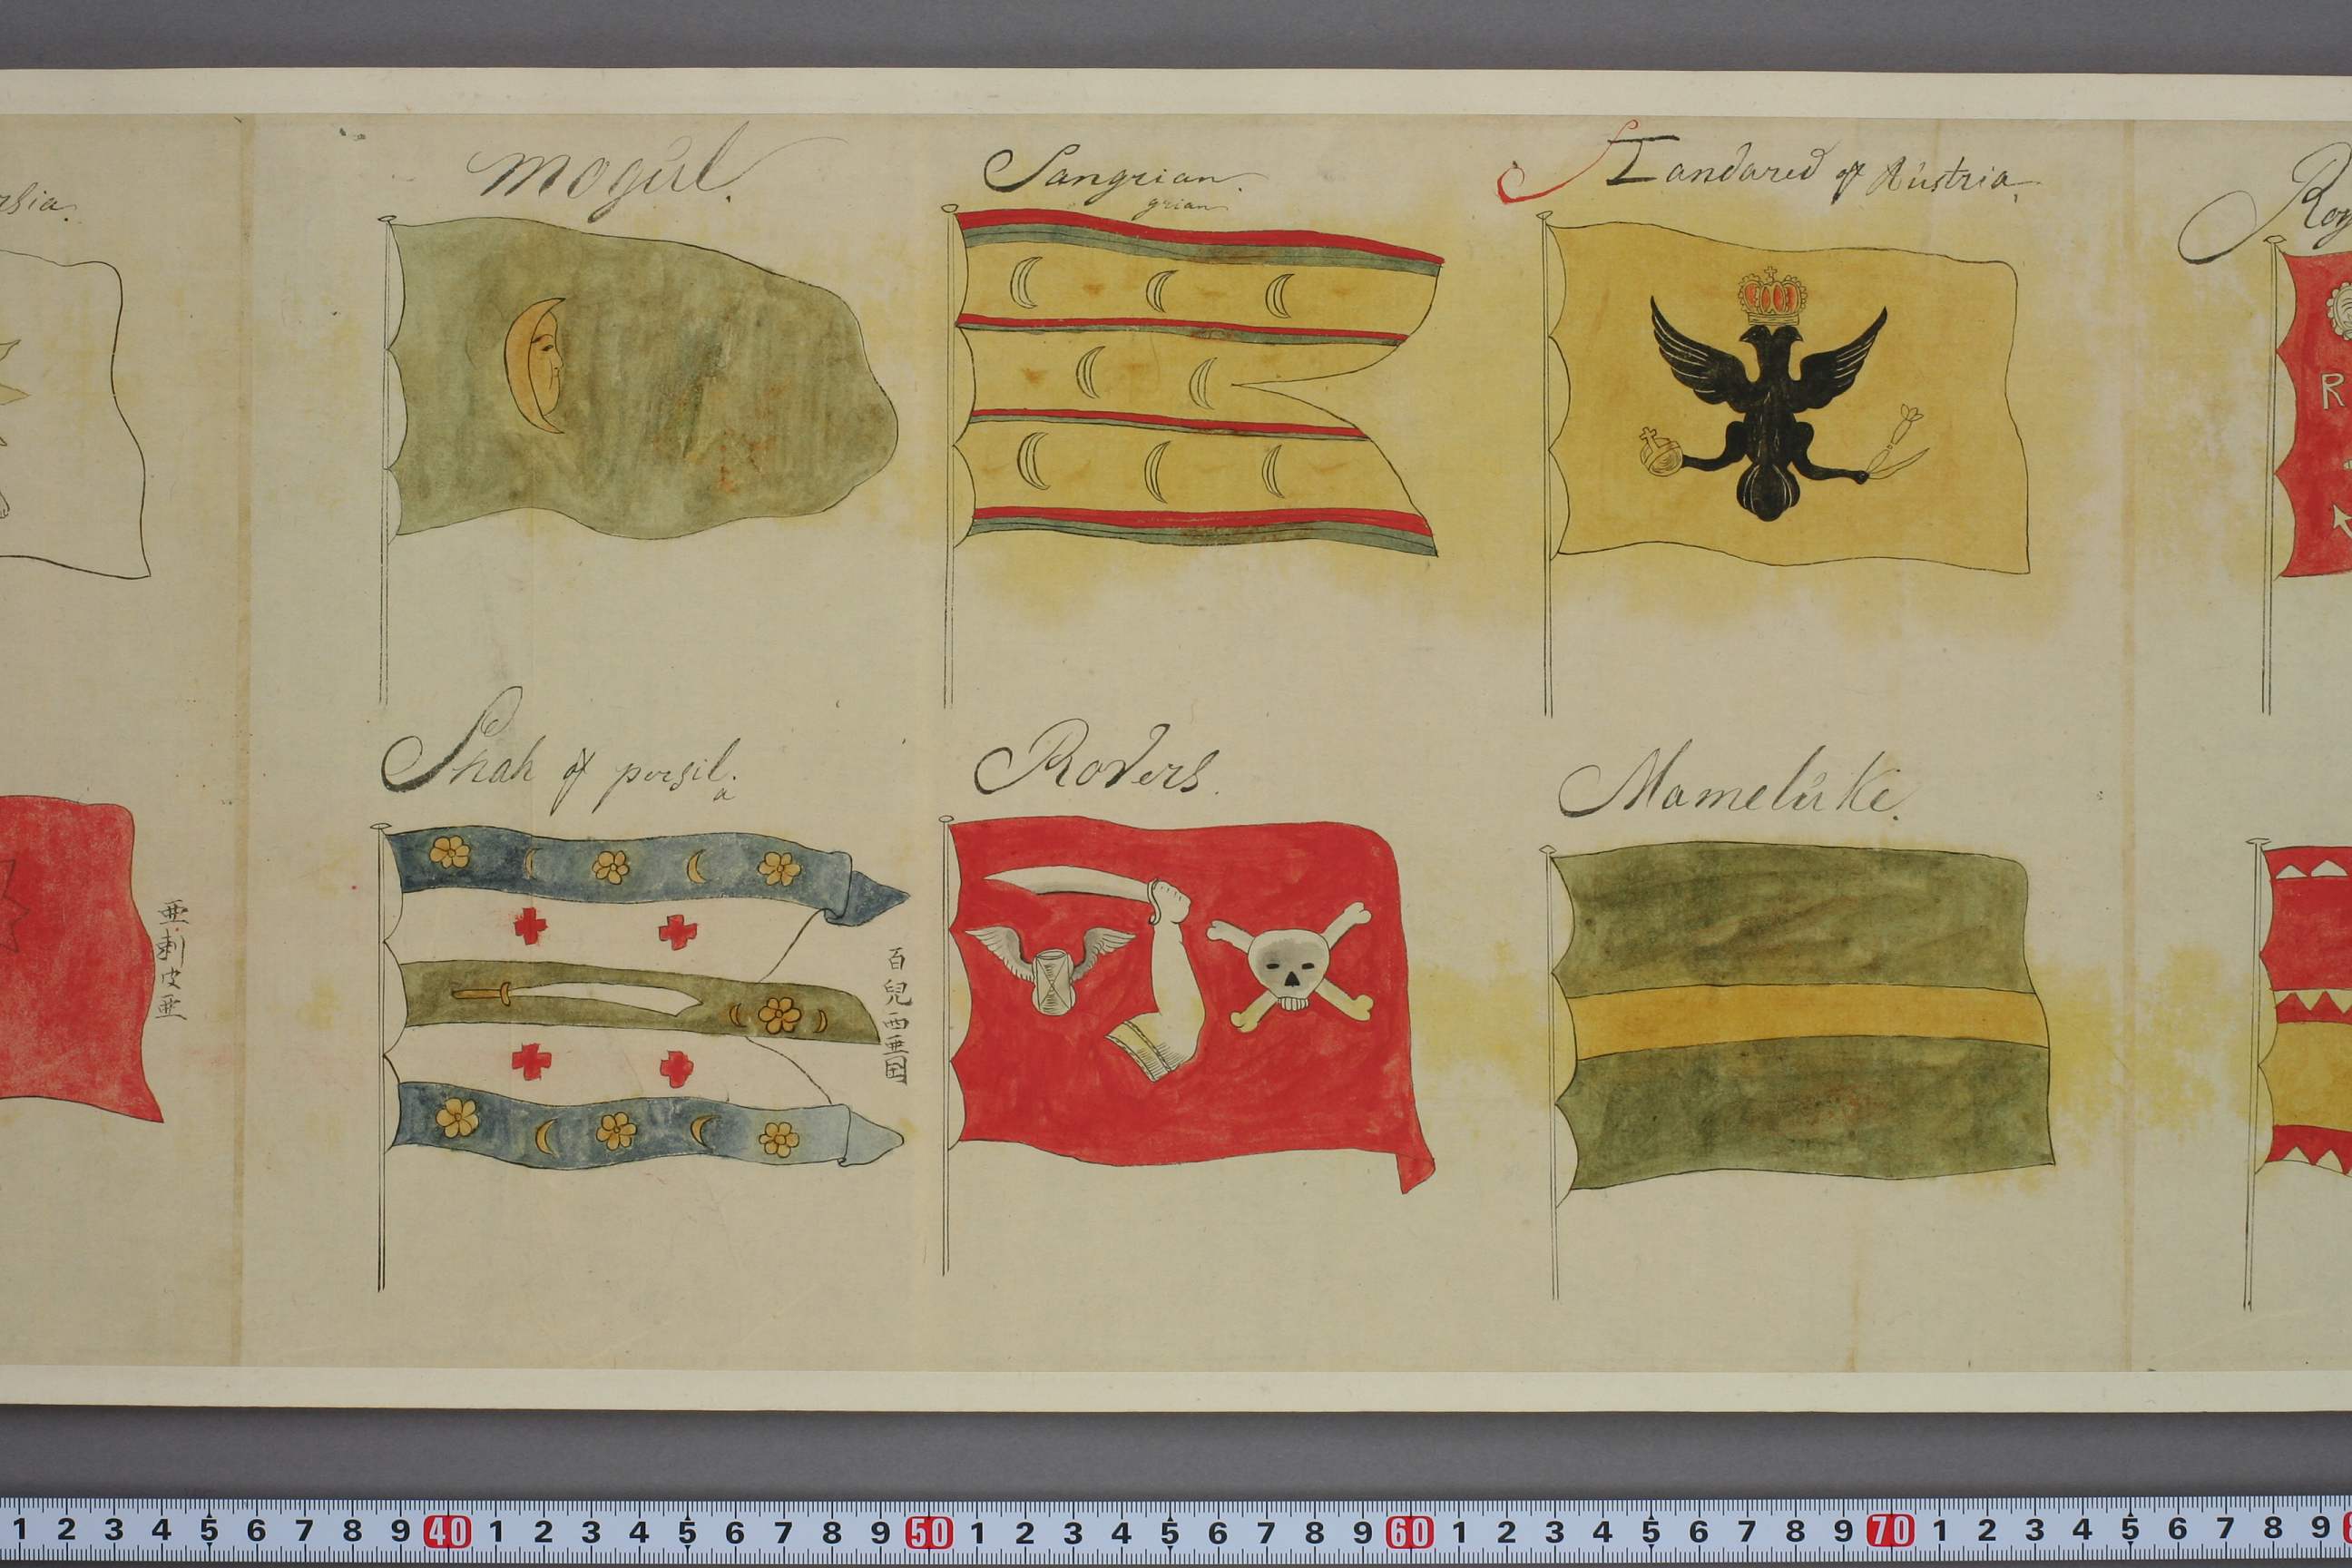 rsia.
mogul.
Sangrian.
grian
Standared of Austria.
Roy
R
亜剌皮亜
Shah of persil.
a
百兒西亜国
Rovers.
Mameluke.
1 2 3 4 5 6 7 8 9 40 1 2 3 4 5 6 7 8 9 50 1 2 3 4 5 6 7 8 9 60 1 2 3 4 5 6 7 8 9 70 1 2 3 4 5 6 7 8 9